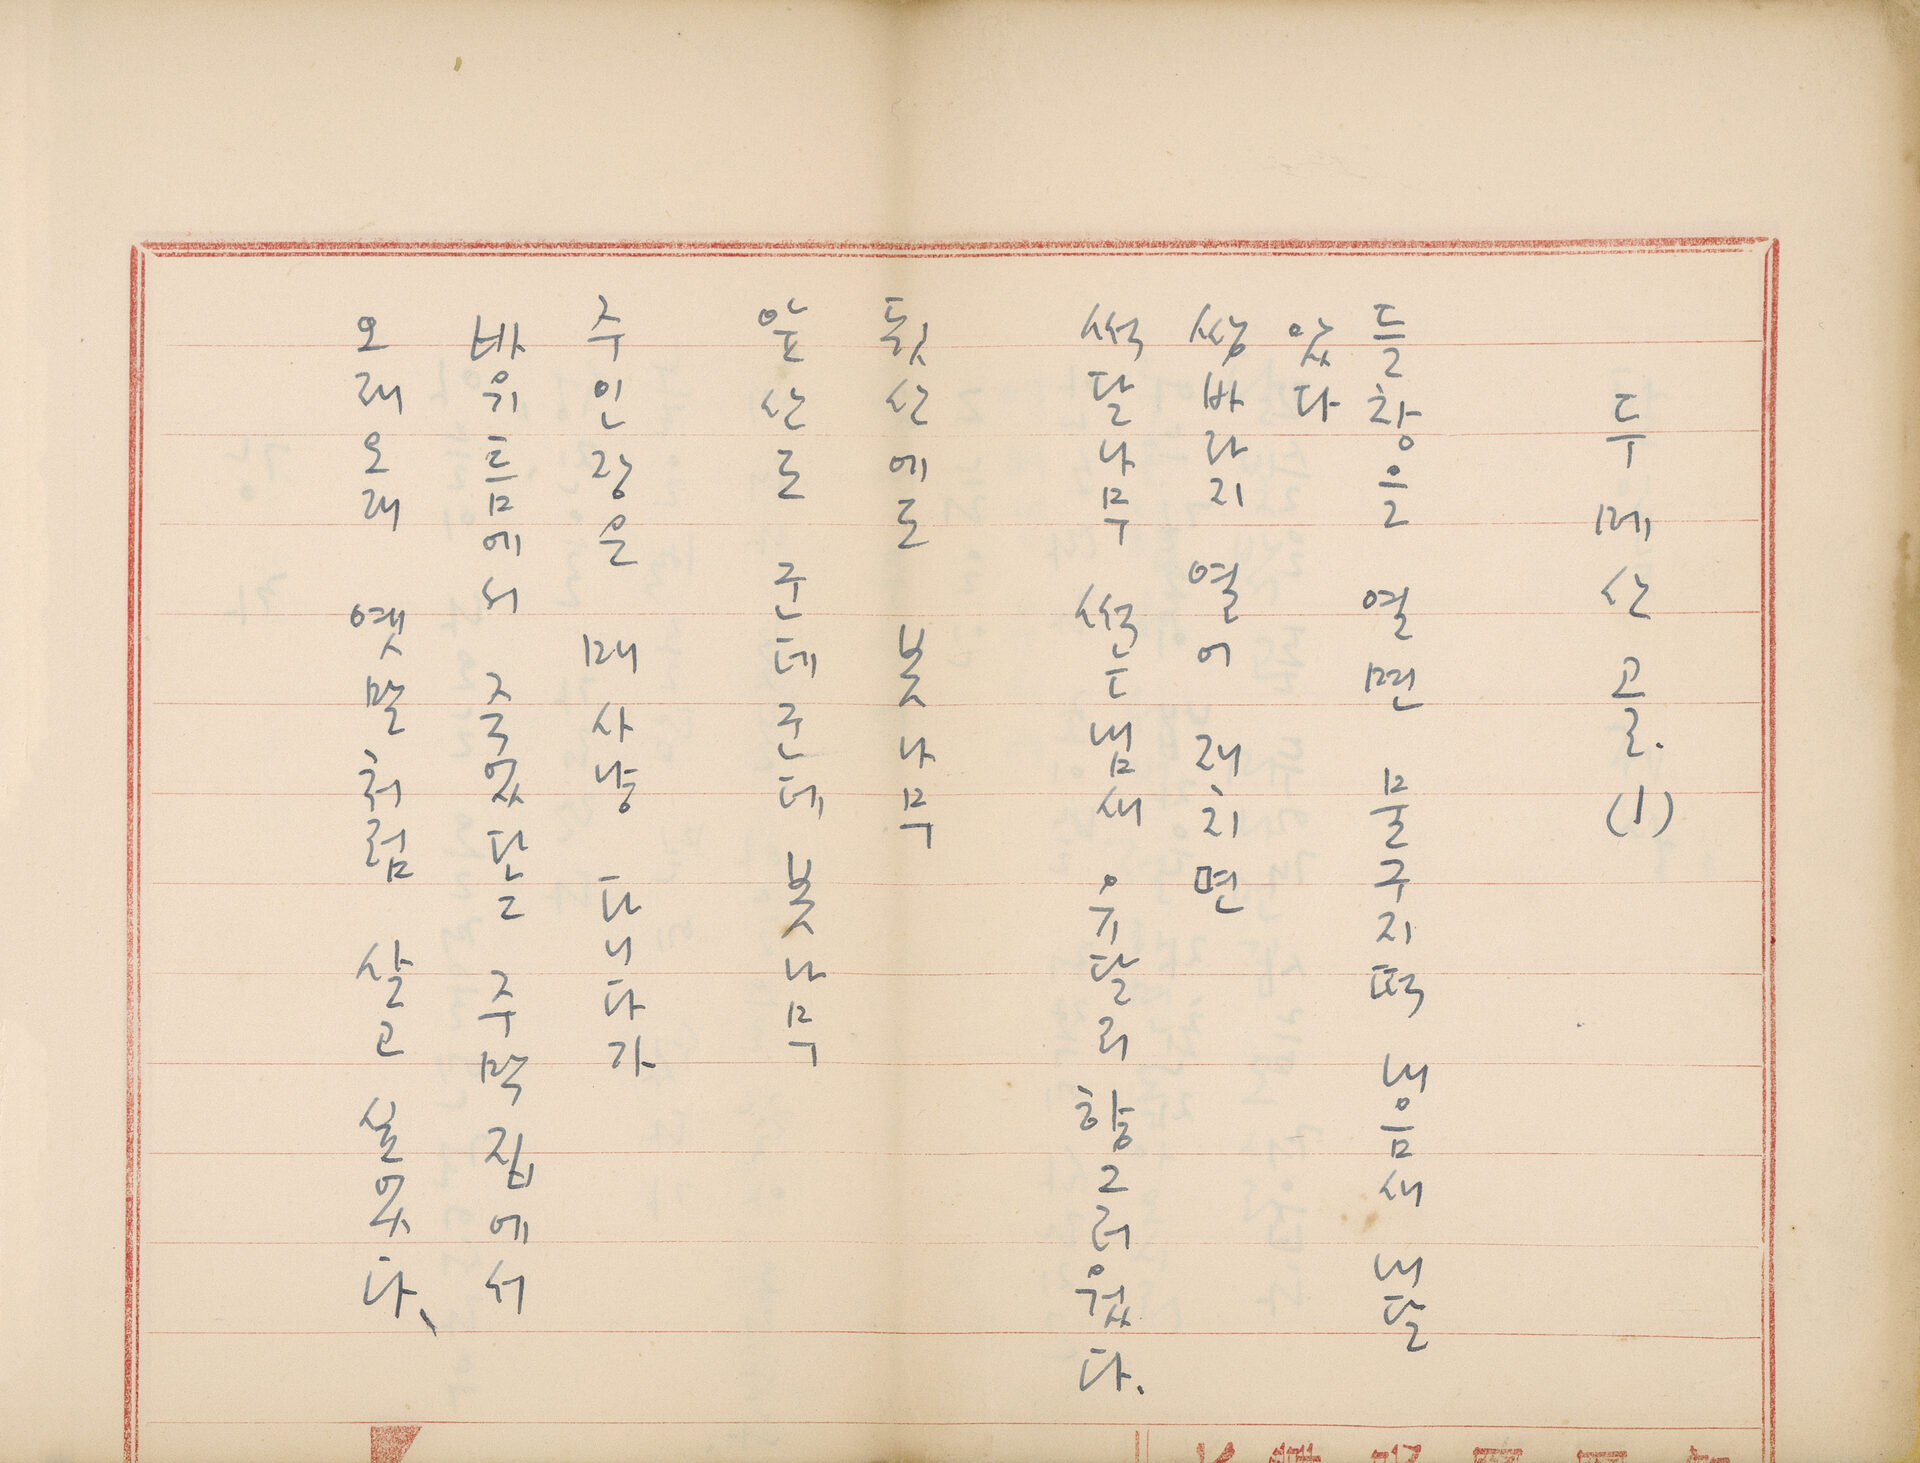 두메산골. (1)
들창을 열면 물구지떡 내음새 내달
았다
쌍바라지 열어 재치면
썩달나무 썩는 냄새 유달리 향그러웠다.
뒷산에도 봋나무
앞산도 군데군데 봋나무
주인장은 매사냥 다니다가
바위틈에서 죽었다는 주막집에서
오래오래 옛말처럼 살고 싶었다、